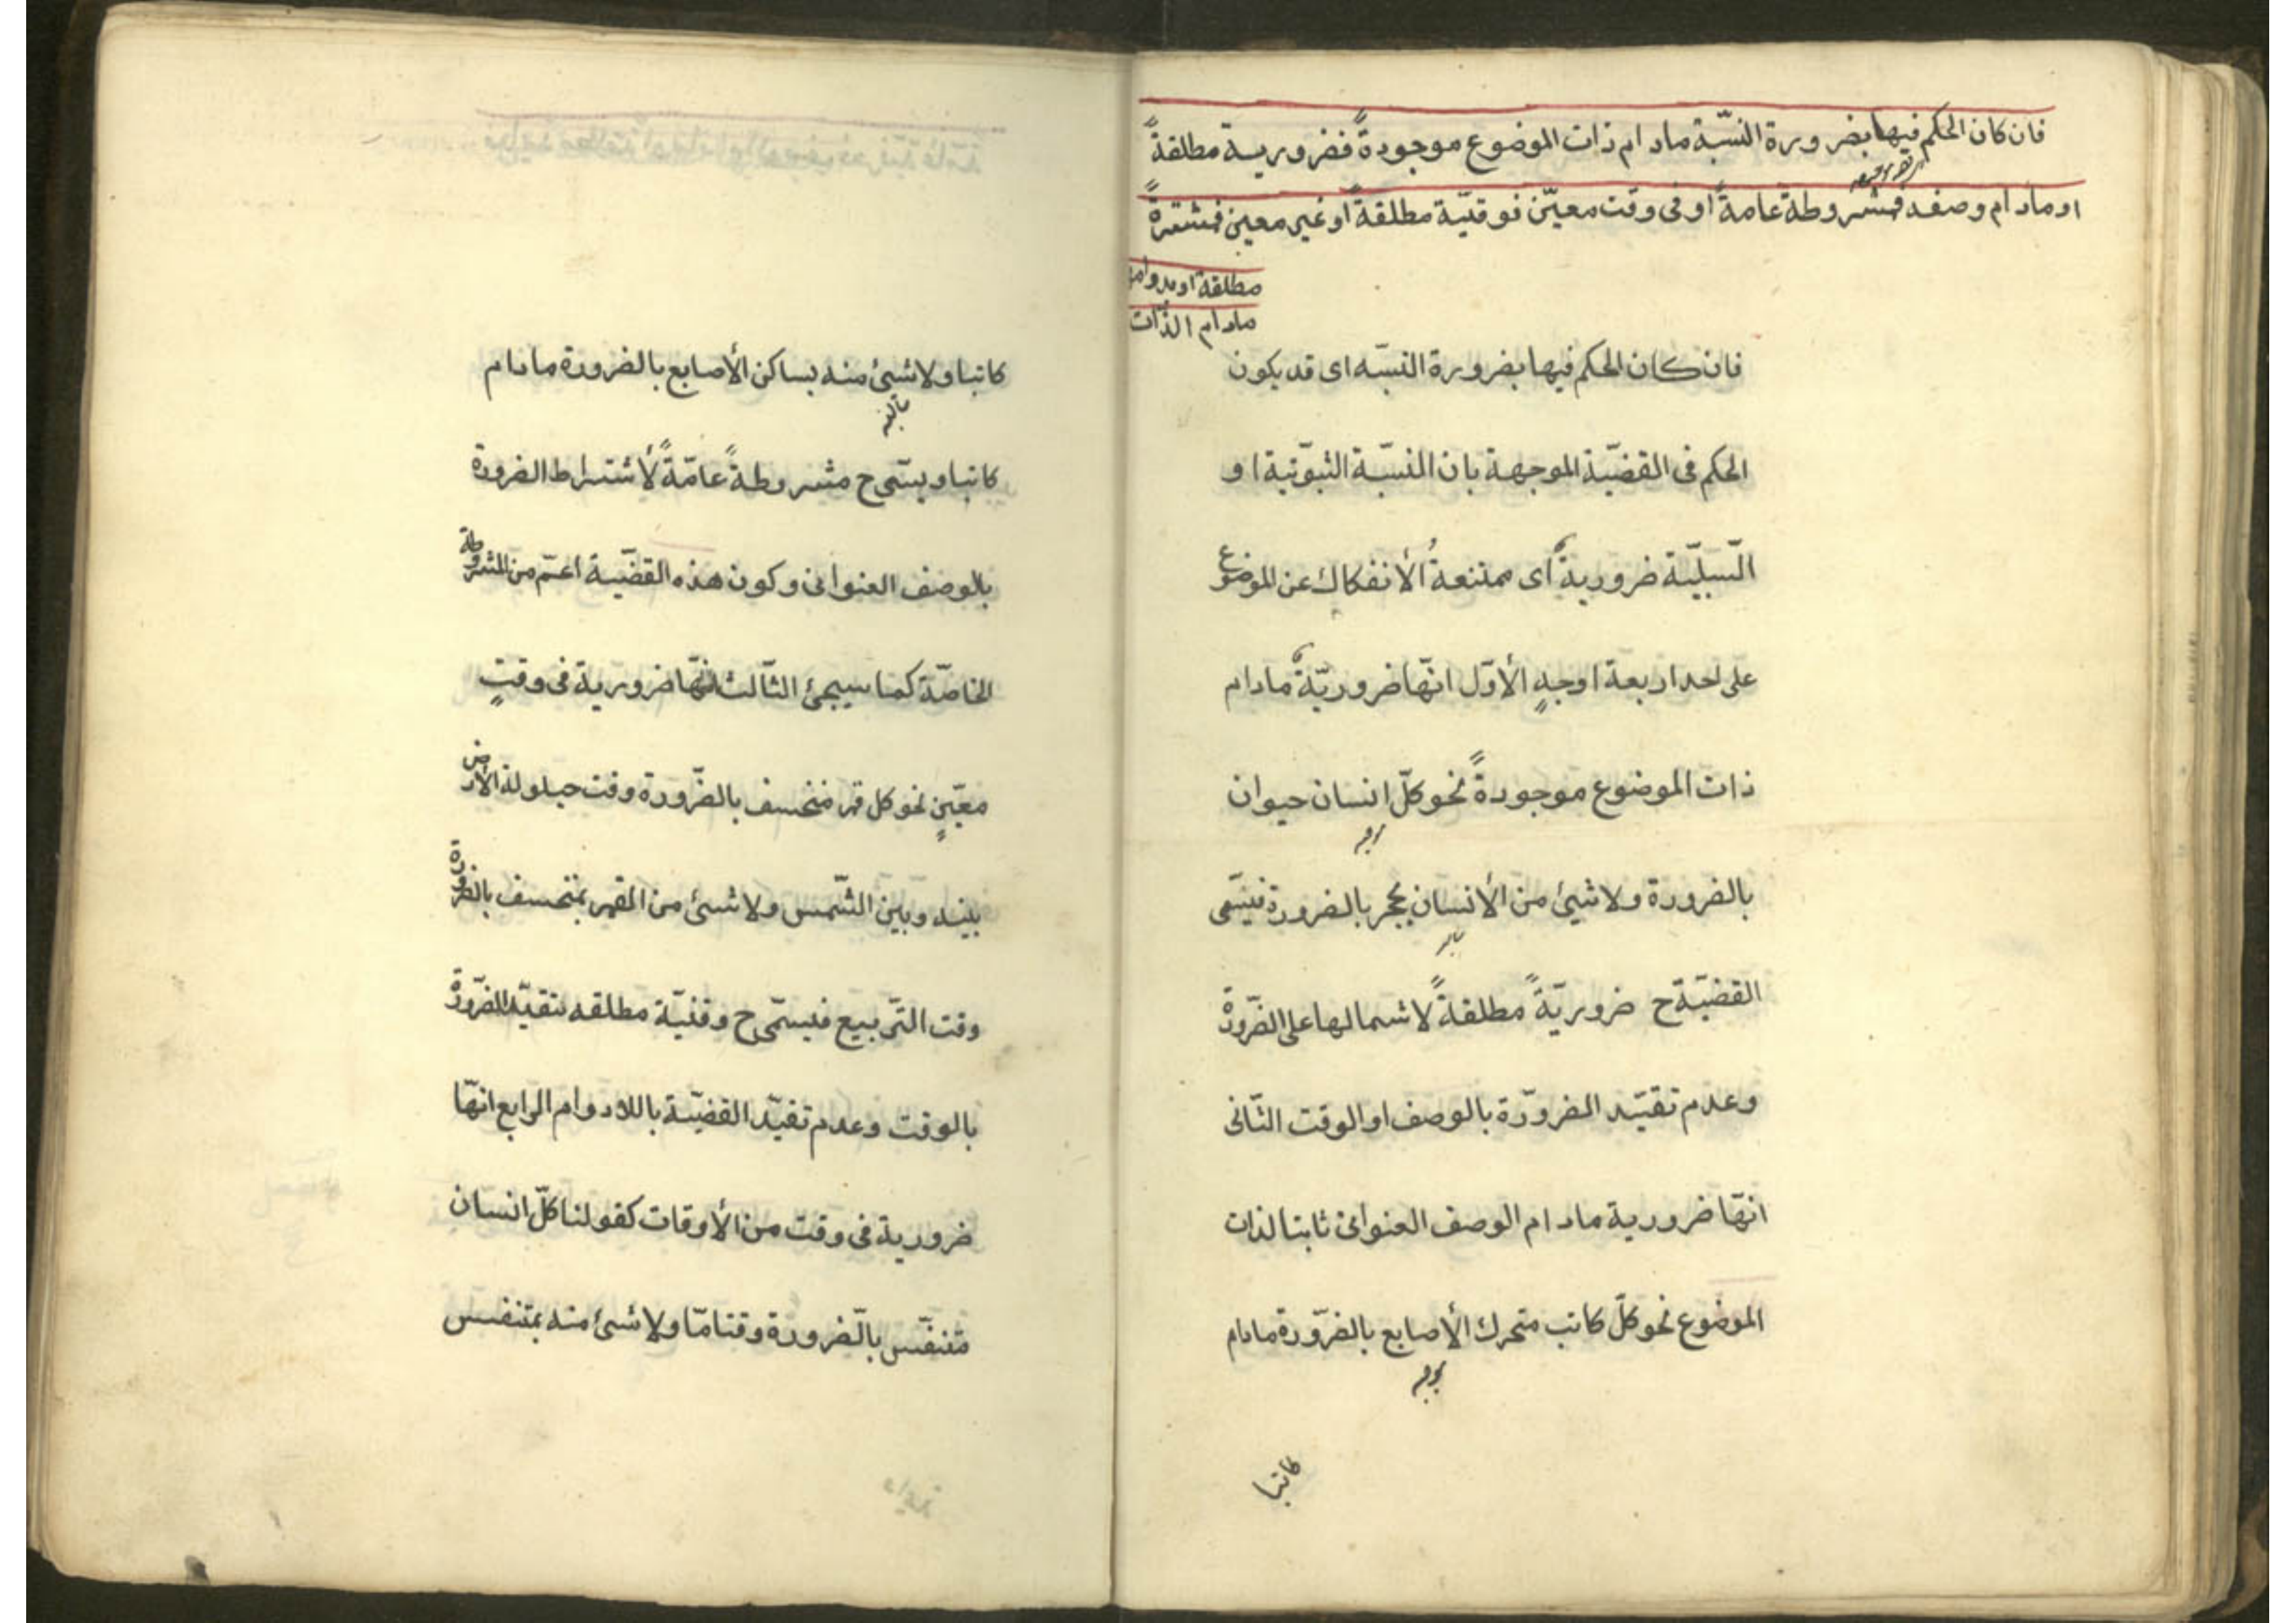 فان كان الحكم فيها بضرورة النسّبة مادام ذات الموضوع موجودةً فضرورية مطلقةً
او مادام وصفه فمشروطة عامةً او فى وقت معيّن فوقتيّة مطلقةً او غير معين فمنتشرةً
مطلقة او بدوامها
مادام الذّات
فان كان الحكم فيها بضرورة النسّبه اى قد يكون
الحكم فى القضيّة الموجهة بان النسّبة الثبوّتية او
السّلبيّة ضروريةٌ اى ممتنعةُ الأنفكاك عن الموضوع
على احد اربعة اوجهٍ الأوّل انّها ضروريّةٌ مادام
ذات الموضوع موجودةً نحو كلّ انسان حيوان
بالضرورة ولا شيئ من الأنسان بحجر بالضرورة فيسّمى
القضيّة ح ضروريّةً مطلقةً لاشمالها على الضّرورة
وعدم تقيّد الضرورّة بالوصف او الوقت الثّانى
انّها ضرورية مادام الوصف العنوانى ثابتا لذات
الموضوع نحو كلّ كاتب متحرك الأصابع بالضرّورة مادام
كاتبا
كاتبا ولا شئ منه بساكن الأصابع بالضرورة مادام
كاتبا ويسّمى ح مشروطةً عامّةً لأشتراط الضرورة
بالوصف العنوانى وكون هذه القضيّة اعمّ من المشروطة
الخاصّة كما سيجئ الثّالث انّها ضرورية فى وقتٍ
معيّنٍ نحو كل قمر منخسف بالضّرورة وقت حيلولة الأرض
بينه وبين الشّمس ولا شئ من القمر بمنخسف بالضرورة
وقت التّربيع فيسمّى ح وقتيّة مطلقه لتقيّد الضّرورة
بالوقت وعدم تقيّد القضيّة باللادوام الرابع انّها
ضرورية فى وقت من الأوقات كقولنا كلّ انسان
متنفّس بالضّرورة وقتا مّا ولا شئ منه بمتنفس